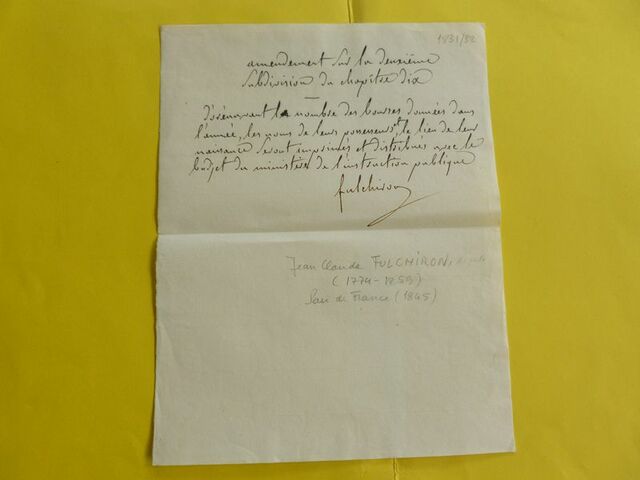 1831/32
amendement sur la deuxième
subdivision du chapitre dix
dorénavant le nombre des bourses données dans
l'année, les noms de leurs possesseurs et le lieu de leur
naissance seront imprimés et distribués avec le
budget du ministère de l'instruction publique
fulchiron
Jean Claude FULCHIRON,
(1774-1859)
Pair de France (1845)